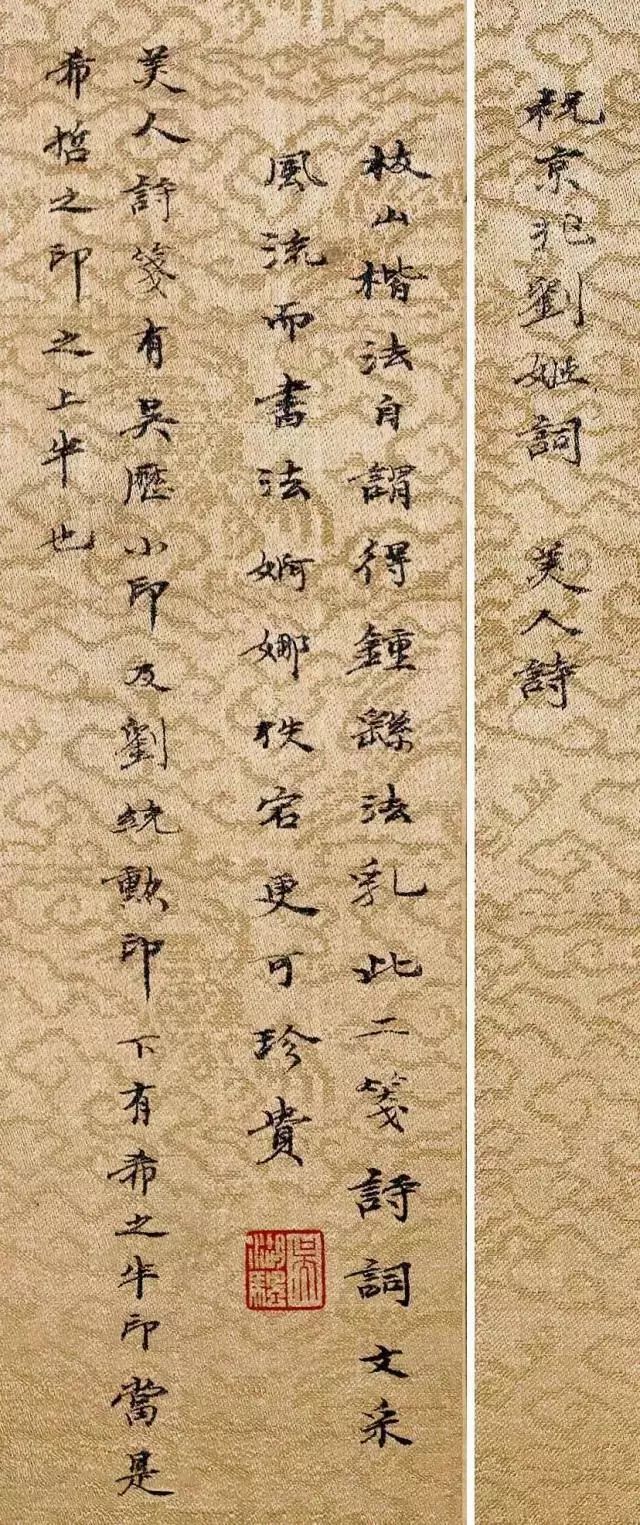 祝京兆劉姬詞 美人詩
枝山楷法自謂得鍾繇法乳此二箋詩詞文采
風流而書法婀娜秩宕更可珍貴
美人詩箋有吳歷小印及劉統勲印 下有希之半印當是
希哲之印之上半也
吳湖驅